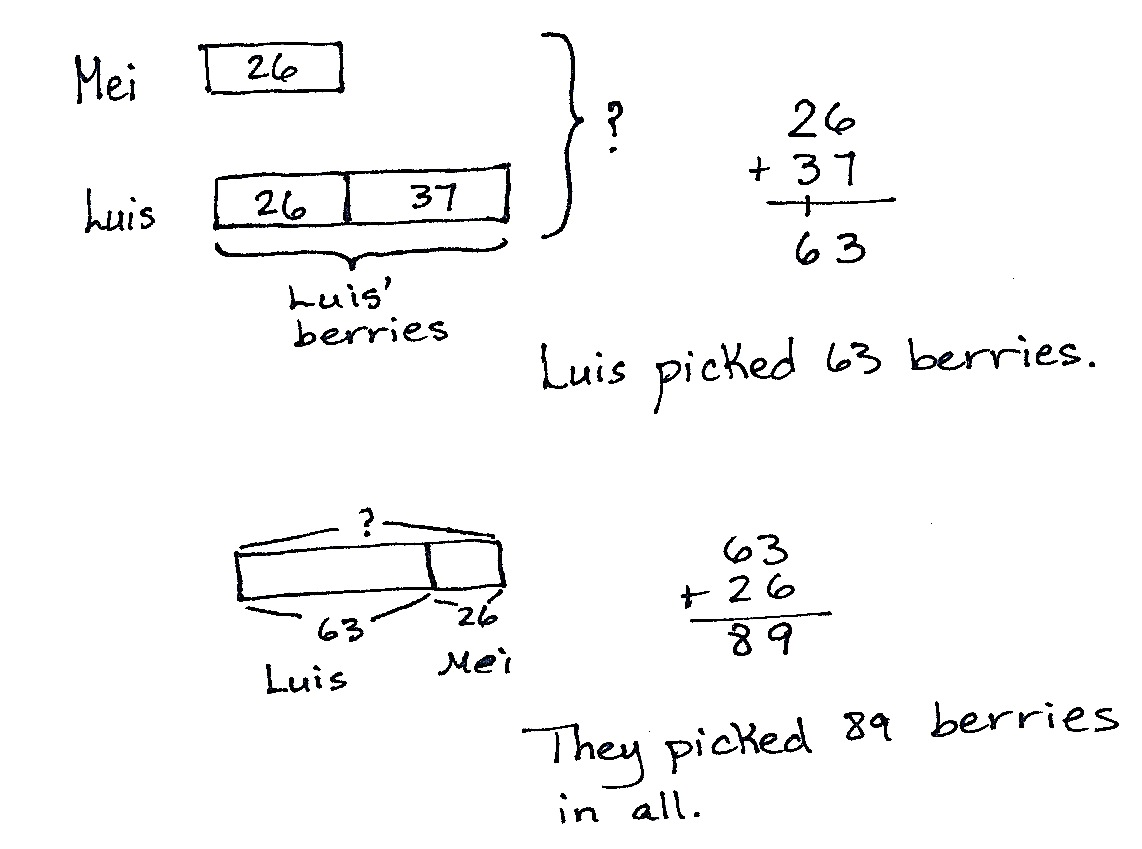 Mei 26
?
26
+ 37
1
63
Luis 26 37
Luis'
berries
Luis picked 63 berries.
?
63 26
Luis Mei
63
+ 26
89
They picked 89 berries
in all.